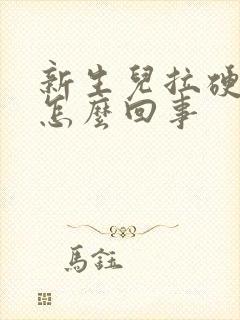 新生兒拉硬
怎麼回事
馬鈺